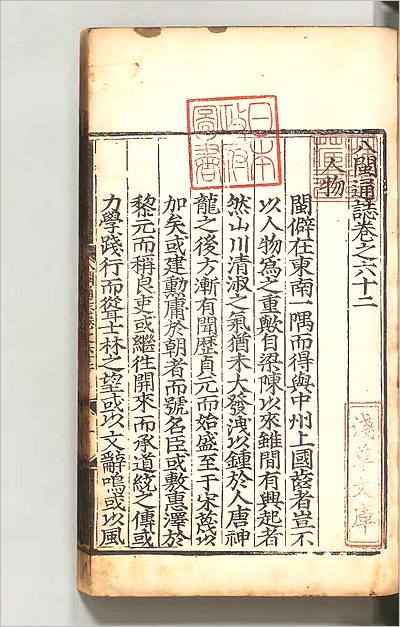 八閩通誌卷之六十二
人物
閩僻在東南一隅而得與中州上國齒者豈不
以人物為之重歟自梁陳以來雖間有興起者
然山川清淑之氣猶未大發洩以鍾於人唐神
龍之後方漸有聞歷貞元而始盛至于宋蓋以
加矣或建勳庸於朝者而號名臣或敷惠澤於
黎元而稱良吏或繼往開來而承道統之傳或
力學踐行而聳士林之望或以文辭鳴或以風
日本
政府
圖書
淺草文庫